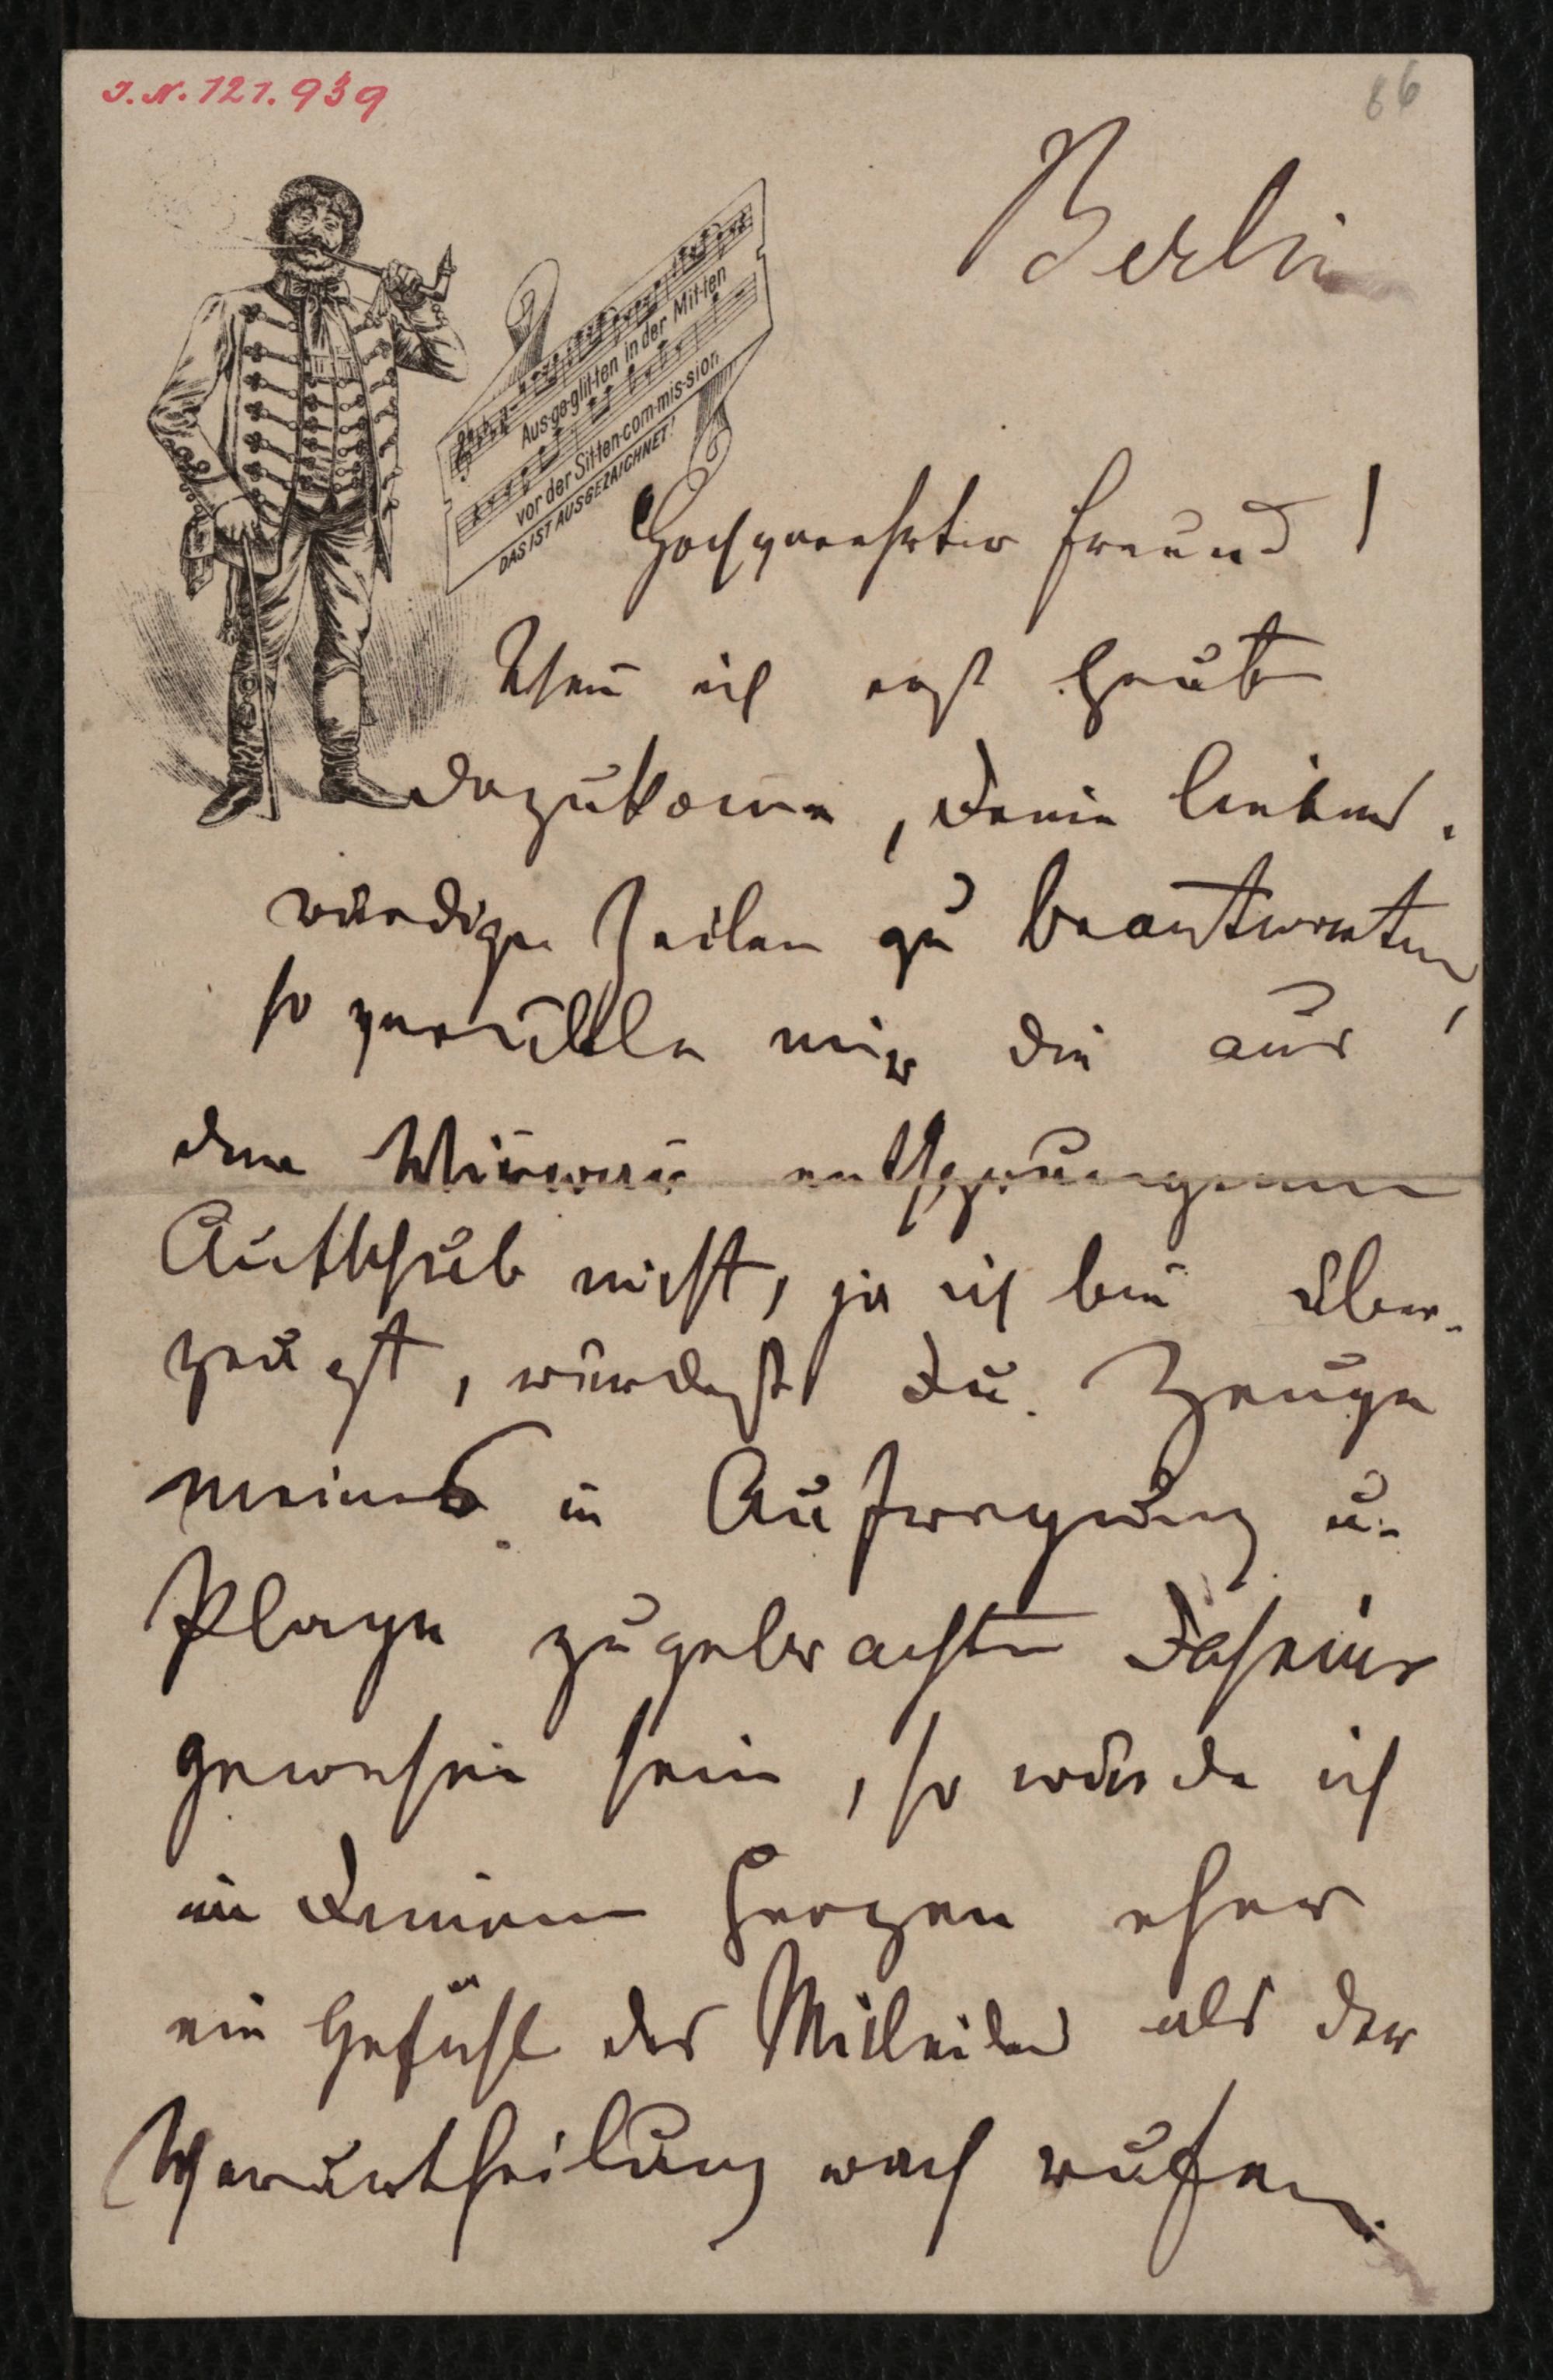 I.N. 121.939
86
Berlin
Aus-ge-glit-ten in der Mit-ten
vor der Sit-ten-com-mis-sion,
DAS IST AUSGEZAICHNET!
Hochverehrter Freund!
Wenn ich erst heute
dazukome, Deine liebens-
würdigen Zeilen zu beantworten,
so mir die aus
dem Wirrwarr entsprungene
nicht, ja ich bin über-
zeugt, würdest Du Zeuge
meines in Aufregung u.
Plage zugebrachten Daseins
gewesen sein, so würde ich
in Deinem Herzen eher
ein Gefühl des Mitleides als der
Verurtheilung wach rufen.